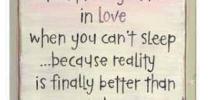 in love
when you can't sleep
...because reality
is finally better than